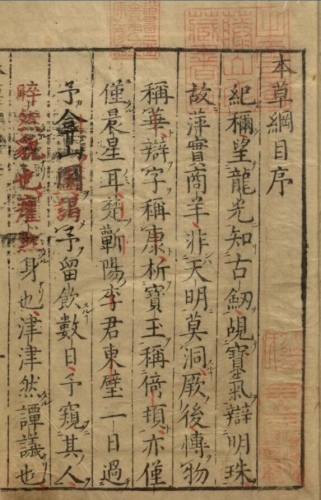 本草綱目序
紀稱望龍光知古釼覘寶氣辯明珠
故萍實商羊非天明莫洞厥後愽物
稱華辯字稱康析寶玉稱倚頓亦僅
僅晨星耳楚蘄陽李君東璧一日過
予弇山園謁予留飲數日予窺其人
睟然貌也癯然身也津津然譚議也